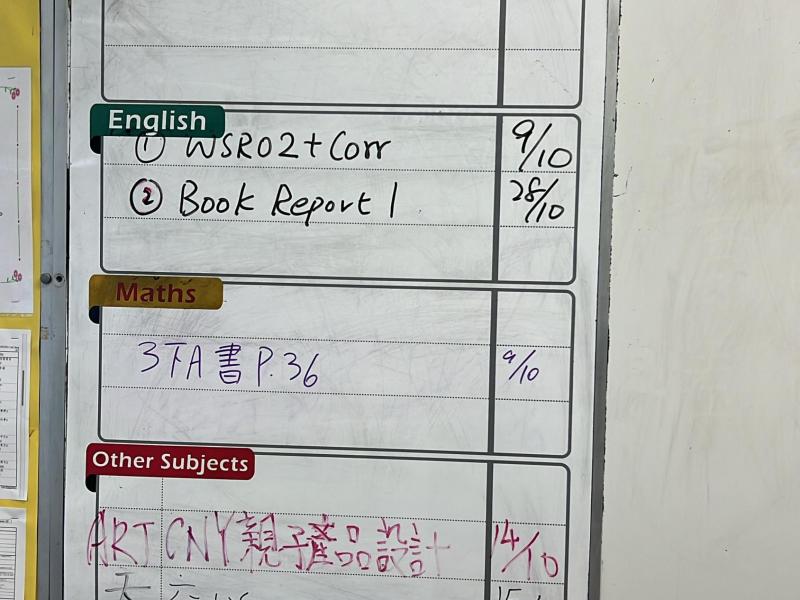 English
① WSR02+Corr 9/10
② Book Report 1 28/10
Maths
3下A書 P.36 9/10
Other Subjects
ART CNY親子產品設計 14/10